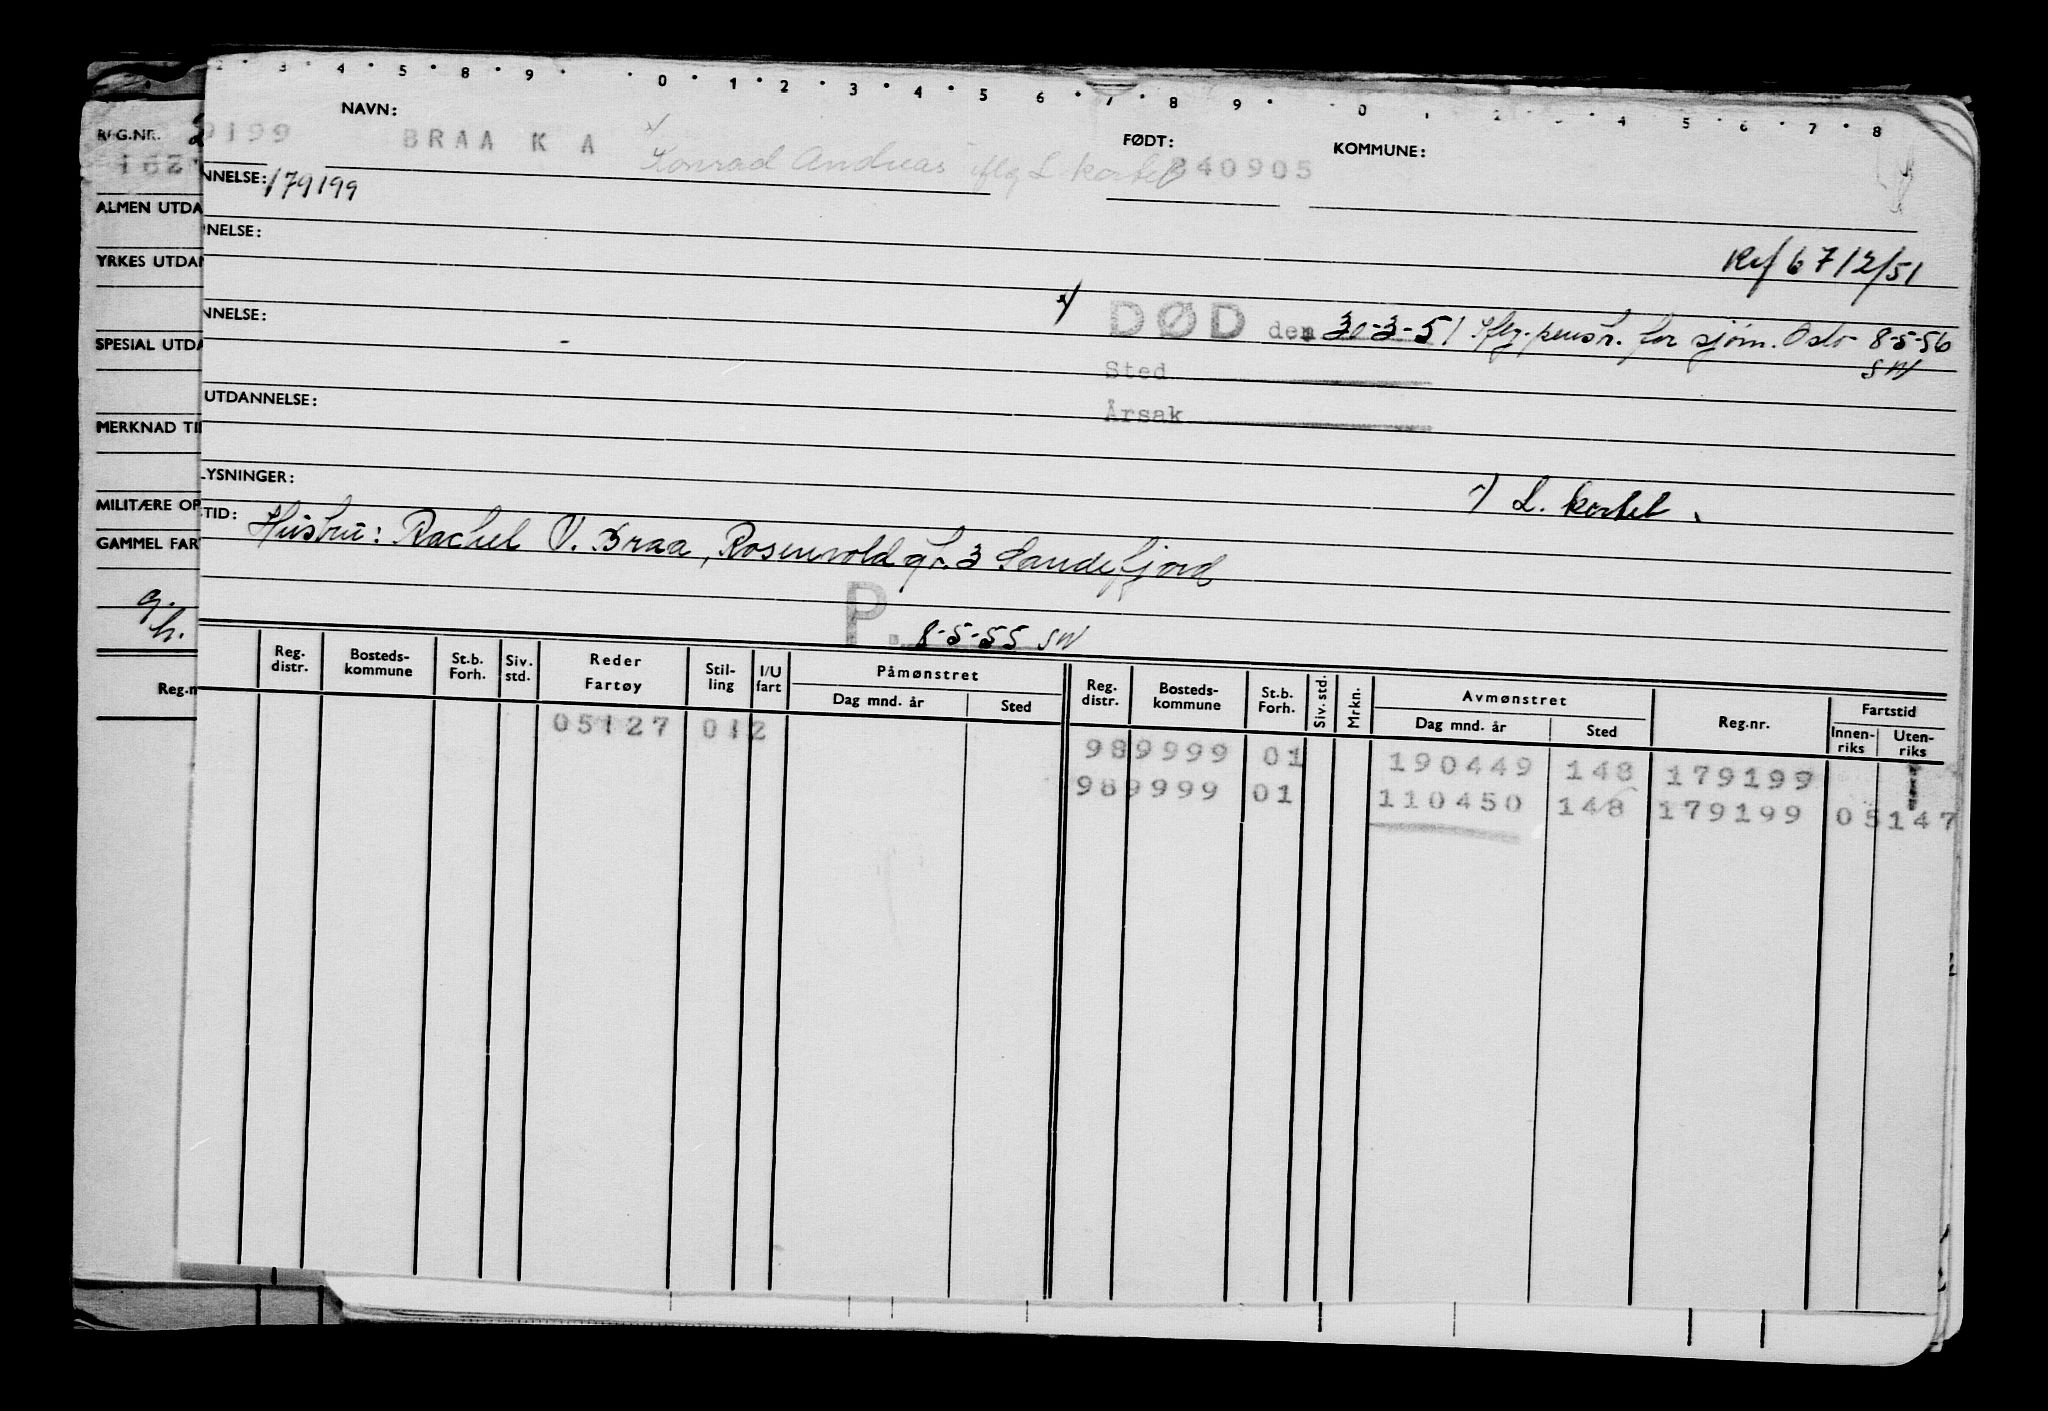 2 · 3 · 4 · 5 · 8 · 9 · 0 · 1 · 2 · 3 · 4 · 5 6 · 7 · 8 9 · 0 4 · 5 · 6 · 7 · 8
REG.NR. 9199 NAVN: BRAA K A x/ Konrad Andreas iflg L kortet FØDT: 040905 KOMMUNE:
162
NNELSE: 179199
ALMEN UTDA
NELSE:
YRKES UTDAN
Ref 6712/51
NNELSE:
x/ DØD den 30-3-51 iflg. penstr. for sjøm. Oslo 8-5-56
SPESIAL UTDA
Sted SW
UTDANNELSE: Årsak
MERKNAD TIL
LYSNINGER: x) L. kortet.
MILITÆRE OP
TID: Hustru: Rachel V. Braa, Rosenvold gt. 3 Sandefjord
GAMMEL FAR
g.
h.
P. 8-5-55 SW
Reg.n
Reg. distr. Bosteds-kommune St.b. Forh. Siv. std. Reder Fartøy Stil-ling I/U fart Påmønstret Dag mnd. år Sted Reg. distr. Bosteds-kommune St.b. Forh. Siv. std. Mrkn. Avmønstret Dag mnd. år Sted Reg.nr. Fartstid Innen-riks Uten-riks
05127 012
989999 01 190449 148 179199
989999 01 110450 148 179199 05147